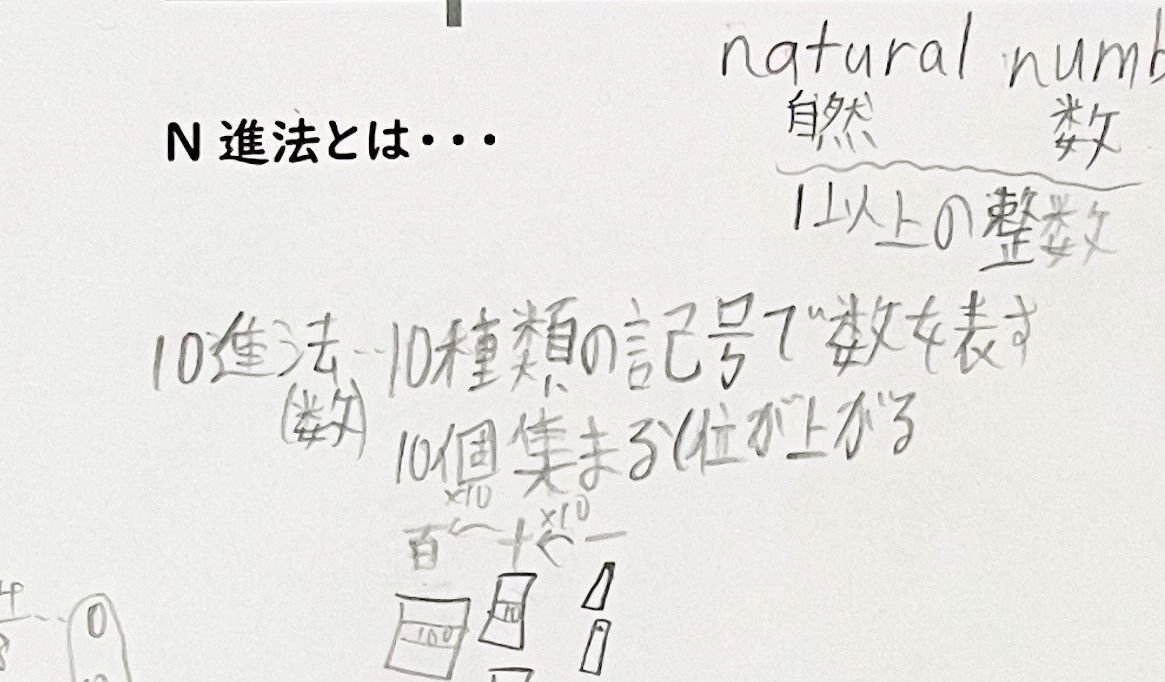 natural numb
自然 数
1以上の整数
N 進法とは・・・
10進法…10種類の記号で数を表す
(数)
10個集まると位が上がる
×10 ×10
百 十 一
100 10
0